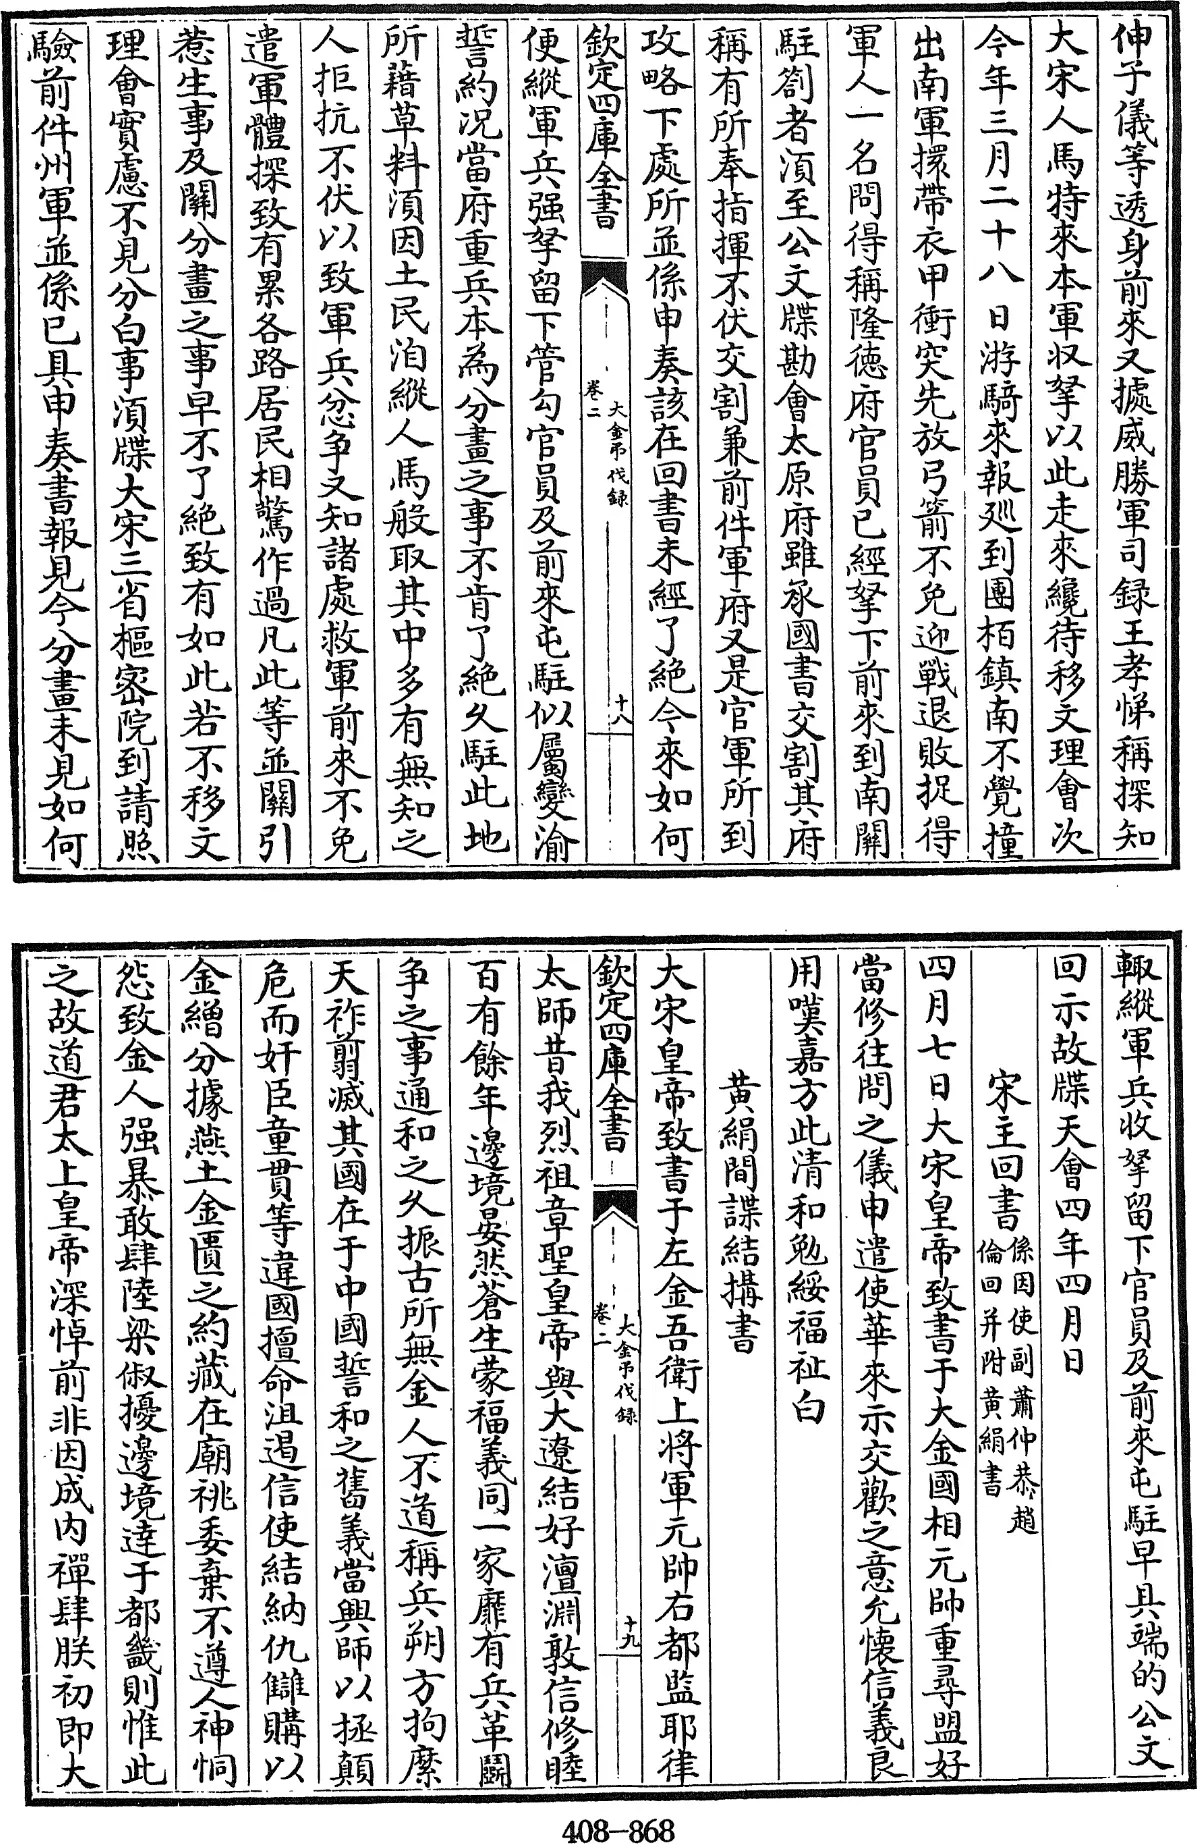 伸子儀等透身前來又據威勝軍司録王孝悌稱探知
大宋人馬特來本軍収拏以此走來纔待移文理會次
今年三月二十八日游騎來報廵到團栢鎮南不覺撞
出南軍擐帶衣甲衝突先放弓箭不免迎戰退敗捉得
軍人一名問得稱隆德府官員已經拏下前來到南關
駐劄者湏至公文牒勘會太原府雖承國書交割其府
稱有所奉指揮不伏交割兼前件軍府又是官軍所到
攻略下處所並係申奏該在回書未經了絶今來如何
欽定四庫全書
大金弔伐録
卷二
十八
便縱軍兵强拏留下管勾官員及前來屯駐似屬變渝
誓約况當府重兵本為分畫之事不肯了絶久駐此地
所藉草料湏因土民洎縱人馬般取其中多有無知之
人拒抗不伏以致軍兵忿争又知諸處救軍前來不免
遣軍體探致有累各路居民相驚作過凡此等並關引
惹生事及關分畫之事早不了絶致有如此若不移文
理會實慮不見分白事湏牒大宋三省樞密院到請照
驗前件州軍並係已具申奏書報見今分畫未見如何
輙縱軍兵收拏留下官員及前來屯駐早具端的公文
回示故牒天會四年四月日
宋主回書係因使副蕭仲恭趙
倫回并附黄絹書
四月七日大宋皇帝致書于大金國相元帥重尋盟好
當修往問之儀申遣使華來示交歡之意允懷信義良
用嘆嘉方此清和勉綏福祉白
黄絹間諜結搆書
大宋皇帝致書于左金吾衛上將軍元帥右都監耶律
欽定四庫全書
大金弔伐録
卷二
十九
太師昔我烈祖章聖皇帝與大遼結好澶淵敦信修睦
百有餘年邊境晏然蒼生蒙福義同一家靡有兵革鬭
争之事通和之久振古所無金人不道稱兵朔方拘縻
天祚翦滅其國在于中國誓和之舊義當興師以拯顛
危而奸臣童貫等違國擅命沮遏信使結納仇讎購以
金繒分據燕土金匱之約藏在廟祧委棄不遵人神恫
怨致金人强暴敢肆陸梁俶擾邊境達于都畿則惟此
之故道君太上皇帝深悼前非因成内禪肆朕初即大
408-868